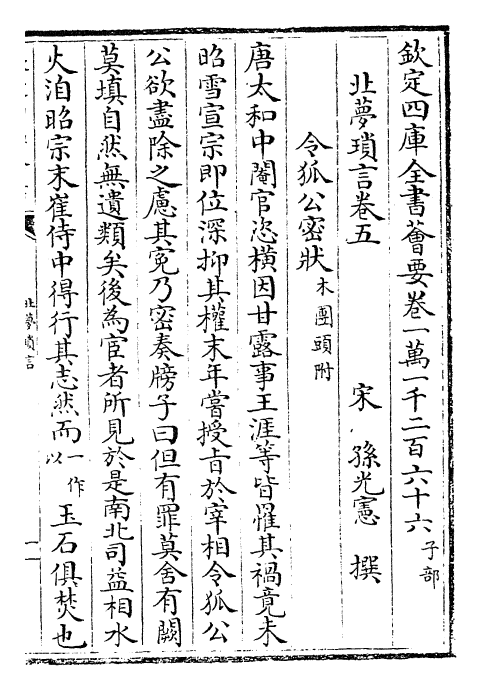 欽定四庫全書薈要卷一萬一千二百六十六 子部
北夢瑣言卷五
宋 孫光憲 撰
令狐公密狀 木團頭附
唐太和中閹官恣橫因甘露事王涯等皆罹其禍竟未
昭雪宣宗即位深抑其權末年嘗授旨於宰相令狐公
公欲盡除之慮其冤乃密奏牓子曰但有罪莫舍有闕
莫填自然無遺類矣後為宦者所見於是南北司益相水
火洎昭宗末崔侍中得行其志然而一作以玉石俱焚也
北夢瑣言
一